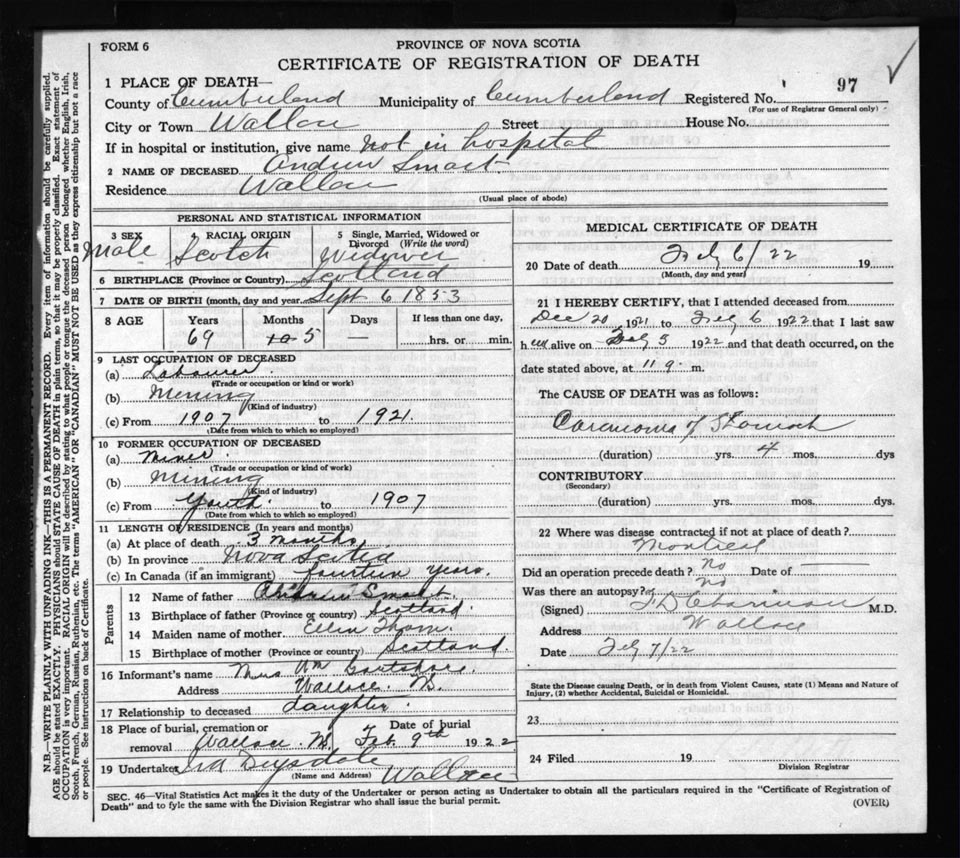 FORM 6
PROVINCE OF NOVA SCOTIA
CERTIFICATE OF REGISTRATION OF DEATH
1 PLACE OF DEATH—
County of Cumberland Municipality of Cumberland Registered No. 97
(For use of Registrar General only)
City or Town Wallace Street House No.
If in hospital or institution, give name Not in hospital
2 NAME OF DECEASED Andrew Smart
Residence Wallace
(Usual place of abode)
PERSONAL AND STATISTICAL INFORMATION
3 SEX 4 RACIAL ORIGIN 5 Single, Married, Widowed or Divorced (Write the word)
Male Scotch Widower
6 BIRTHPLACE (Province or Country) Scotland
7 DATE OF BIRTH (month, day and year Sept 6 1853
8 AGE Years Months Days If less than one day,
69 5 — hrs. or min.
9 LAST OCCUPATION OF DECEASED
(a) Labourer
(Trade or occupation or kind or work)
(b) Mining
(Kind of industry)
(c) From 1907 to 1921
(Date from which to which so employed)
10 FORMER OCCUPATION OF DECEASED
(a) Miner
(Trade or occupation or kind of work)
(b) Mining
(Kind of industry)
(c) From Youth to 1907
(Date from which to which so employed)
11 LENGTH OF RESIDENCE (In years and months)
(a) At place of death 3 months
(b) In province Nova Scotia
(c) In Canada (if an immigrant) fourteen years.
Parents
12 Name of father Smart
13 Birthplace of father (Province or country) Scotland.
14 Maiden name of mother Ellen Thom.
15 Birthplace of mother (Province or country) Scotland.
16 Informant's name Mrs Wm Gartshore.
Address Wallace. N.S.
17 Relationship to deceased daughter.
18 Place of burial, cremation or removal Wallace. N.S. Date of burial Feb. 9th 1922
19 Undertaker Ira Drysdale Wallace
(Name and Address)
MEDICAL CERTIFICATE OF DEATH
20 Date of death Feby 6/22 19
(Month, day and year)
21 I HEREBY CERTIFY, that I attended deceased from
Dec 20 1921 to Feby 6 1922 that I last saw
h im alive on Feby 5 1922 and that death occurred, on the
date stated above, at 11 9. m.
The CAUSE OF DEATH was as follows:
Carcinoma of Stomach
(duration) yrs. 4 mos. dys
CONTRIBUTORY
(Secondary)
(duration) yrs. mos. dys.
22 Where was disease contracted if not at place of death?
Montreal
Did an operation precede death? no Date of —
Was there an autopsy? no
(Signed) M.D.
Address Wallace
Date Feby 7/22
State the Disease causing Death, or in death from Violent Causes, state (1) Means and Nature of
Injury, (2) whether Accidental, Suicidal or Homicidal.
23
24 Filed 19
Division Registrar
SEC. 46—Vital Statistics Act makes it the duty of the Undertaker or person acting as Undertaker to obtain all the particulars required in the "Certificate of Registration of
Death" and to fyle the same with the Division Registrar who shall issue the burial permit.
(OVER)
N.B.—WRITE PLAINLY WITH UNFADING INK—THIS IS A PERMANENT RECORD. Every item of information should be carefully supplied.
AGE should be stated EXACTLY. PHYSICIANS should STATE CAUSE OF DEATH in plain terms, so that it may be properly classified. Exact statement of
OCCUPATION is very important. RACIAL ORIGIN will be described by stating to what people or tongue the deceased person belonged whether English, Irish,
Scotch, French, German, Russian, Ruthenian, etc. The terms "AMERICAN" OR "CANADIAN" MUST NOT BE USED as they express citizenship but not a race
or people. See instructions on back of Certificate.